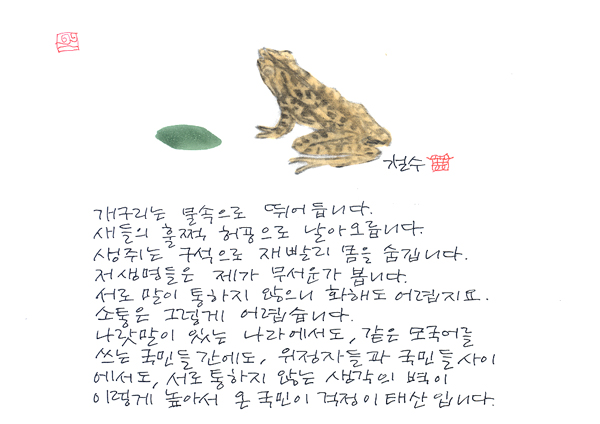 철수
개구리는 물속으로 뛰어듭니다.
새들의 훌쩍 허공으로 날아오릅니다.
생쥐는 구석으로 재빨리 몸을 숨깁니다.
저 생명들은 제가 무서운가 봅니다.
서로 말이 통하지 않으니 화해도 어렵지요.
소통은 그렇게 어렵습니다.
나랏말이 있는 나라에서도, 같은 모국어를
쓰는 국민들간에도, 위정자들과 국민들사이
에서도, 서로 통하지 않는 생각의 벽이
이렇게 높아서 온 국민이 걱정이 태산입니다.